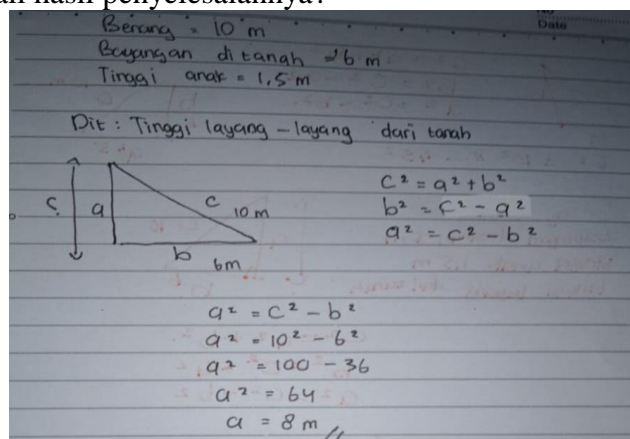 an hasil penyelesaiannya?
Date
Benang = 10 m
Bayangan di tanah = 6 m
Tinggi anak = 1,5 m
Dit : Tinggi layang - layang dari tanah
c² = a² + b²
b² = c² - a²
a² = c² - b²
a
c 10 m
b
6m
a² = c² - b²
a² = 10² - 6²
a² = 100 - 36
a² = 64
a = 8 m //